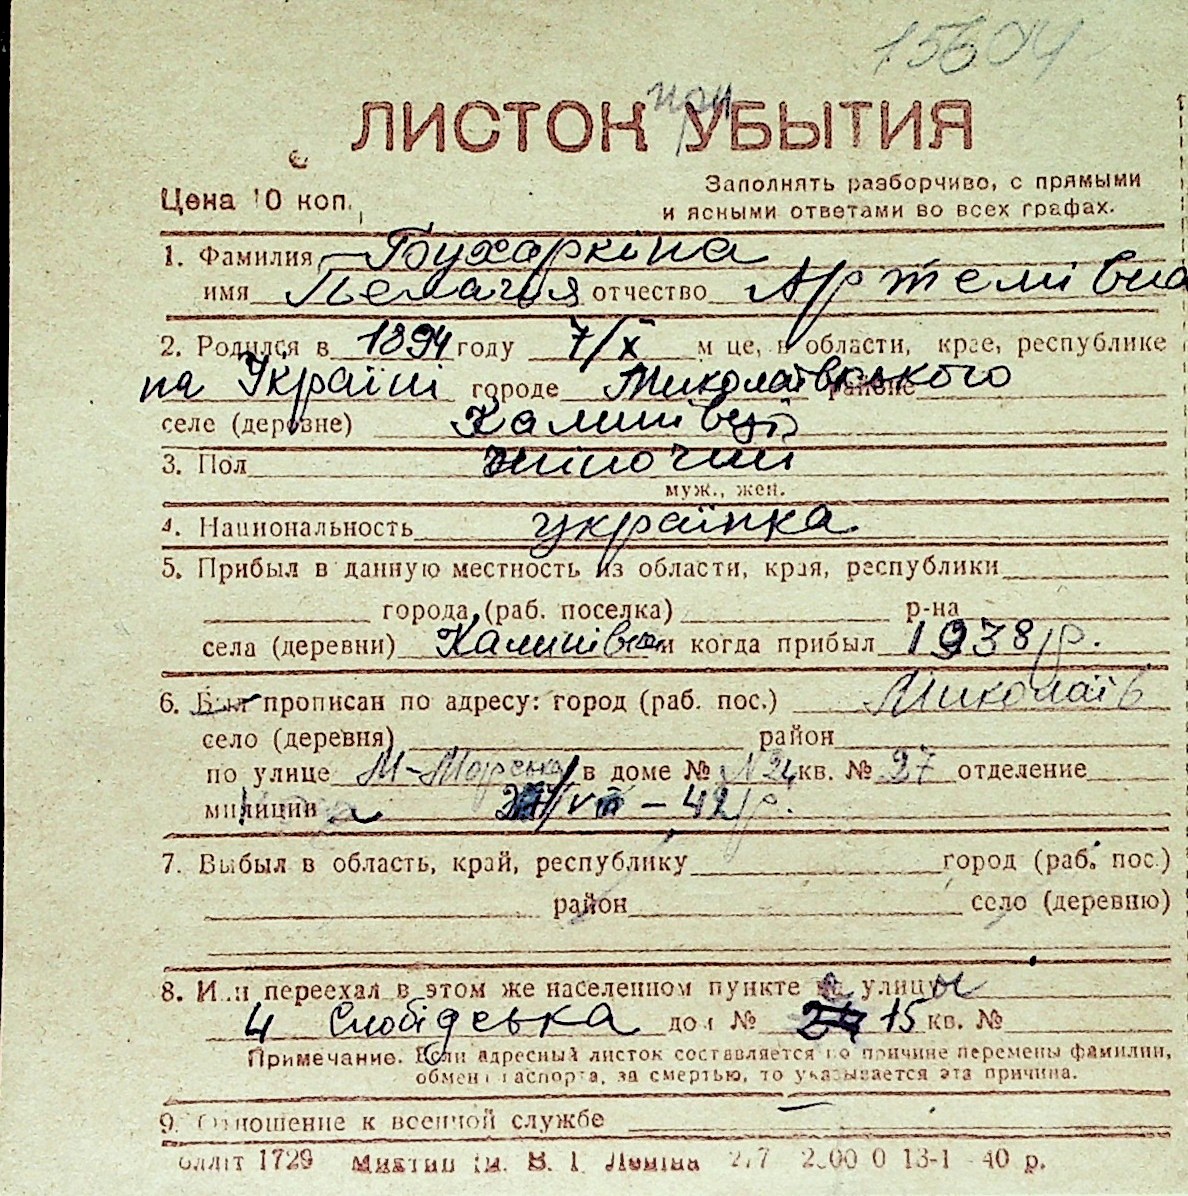 15604
ЛИСТОК при УБЫТИЯ
Цена 10 коп.
Заполнять разборчиво, с прямыми
и ясными ответами во всех графах.
1. Фамилия Бухаркіна
имя Пелагія отчество Артемівна
2. Родился в 1894 году 7/X м це, в области, крае, республике
на Україні городе Миколаївського районе
селе (деревне) Калинівці
3. Пол жіночий
муж., жен.
4. Национальность українка
5. Прибыл в данную местность из области, края, республики
города (раб. поселка) р-на
села (деревни) Калинівка и когда прибыл 1938 р.
6. Был прописан по адресу: город (раб. пос.) Миколаїв
село (деревня) район
по улице М-Морська в доме № 24 кв. № 27 отделение
милиции VII - 42 р.
7. Выбыл в область, край, республику город (раб. пос.)
район село (деревню)
8. Или переехал в этом же населенном пункте улицы
4 Слобідська дом № 15 кв. №
Примечание. Если адресный листок составляется по причине перемены фамилии,
обмен паспорта, за смертью, то указывается эта причина.
9. Отношение к военной службе —
облліт 1729 Миктип ім. В. І. Леніна 40 р.